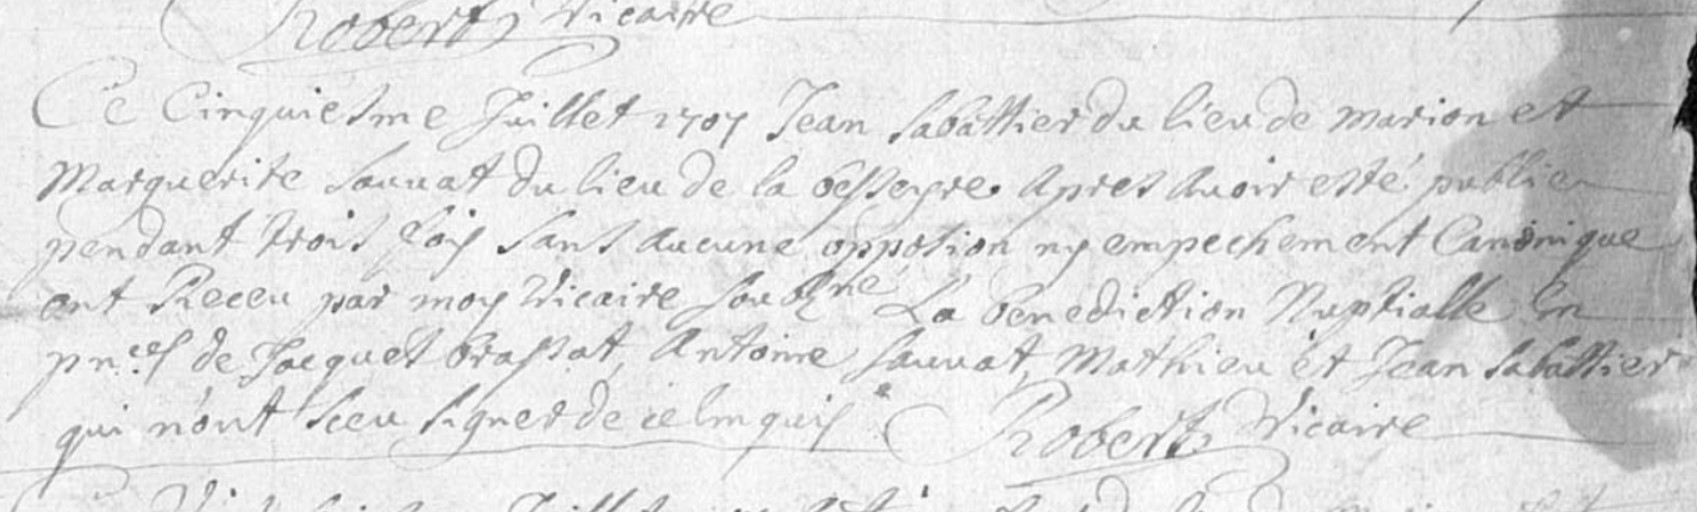 Robert Vicaire
Ce Cinquiesme Juillet 1707 Jean Sabattier du lieu de Marion et
Marguerite Sauvat du lieu de la besseyre. Apres Avoir esté publie
pendant trois fois sans Aucune oppotion ny empechement Canonique
ont Receu par moy Vicaire soubzne La benediction Nuptialle En
pnces de Jacquet brassat, Antoine Sauvat, Mathieu et Jean Sabattier
qui n'ont sceu signer de ce Enquis Robert Vicaire
Juillet